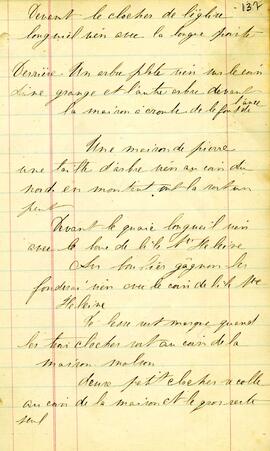 137
Devant le clocher de l'église
longueil vien avec la longue pointe
Derrière Un arbre plate vien sur le coin
d'une grange et l'autre arbre devant
la maison a croute de le fond de
l'anse
Une maison de pierre
une taille d'arbre vien au coin du
nord en montant ont la voit un
peut
Devant le quaie longueil vien
avec le bout de l'ile Ste Helene
les gâgnon les
vien avec le coin de l'ile Ste
Helene
quand
les trois clocher sont au coin de la
maison molson
deux petit clocher a colle
au coin de la maison et le gros reste
seul